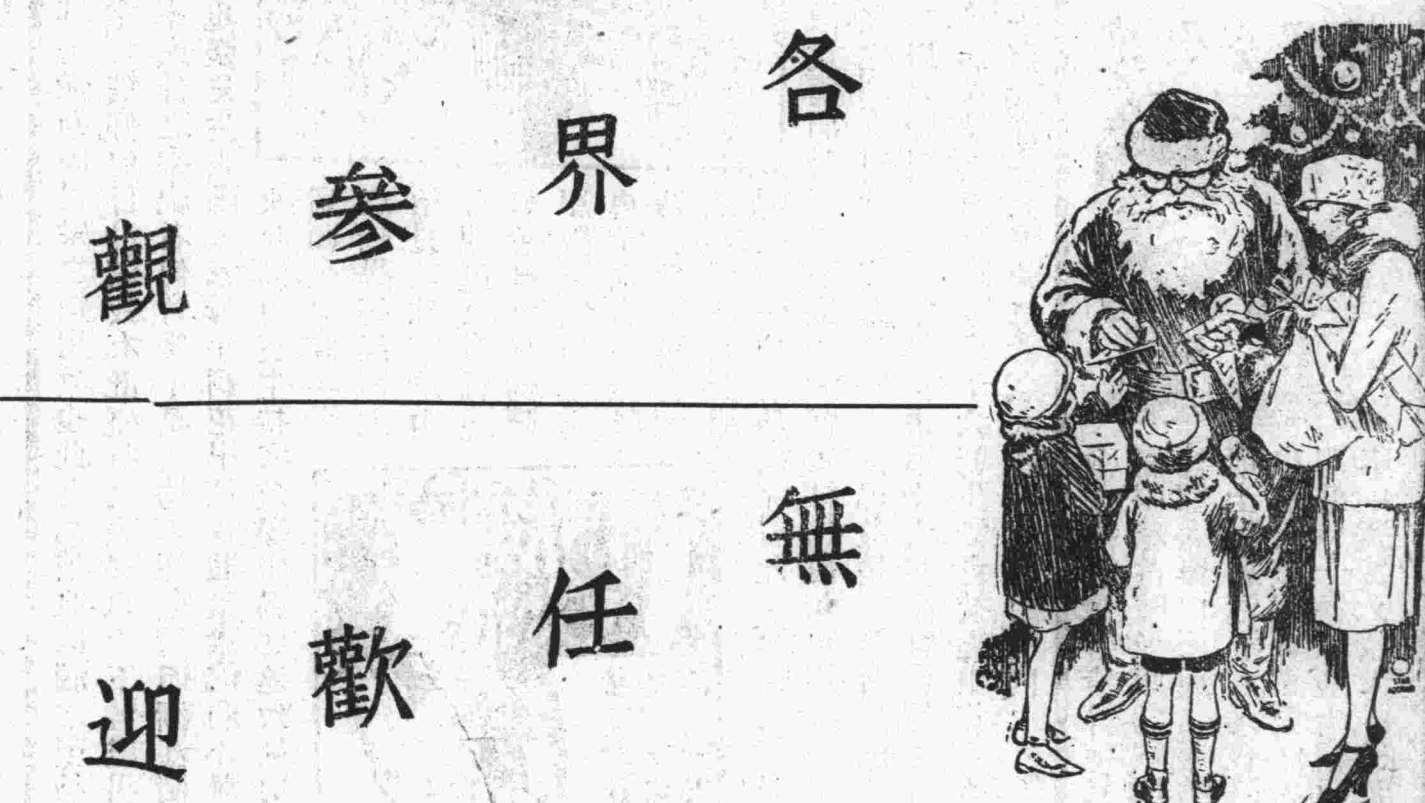 各界參觀
無任歡迎